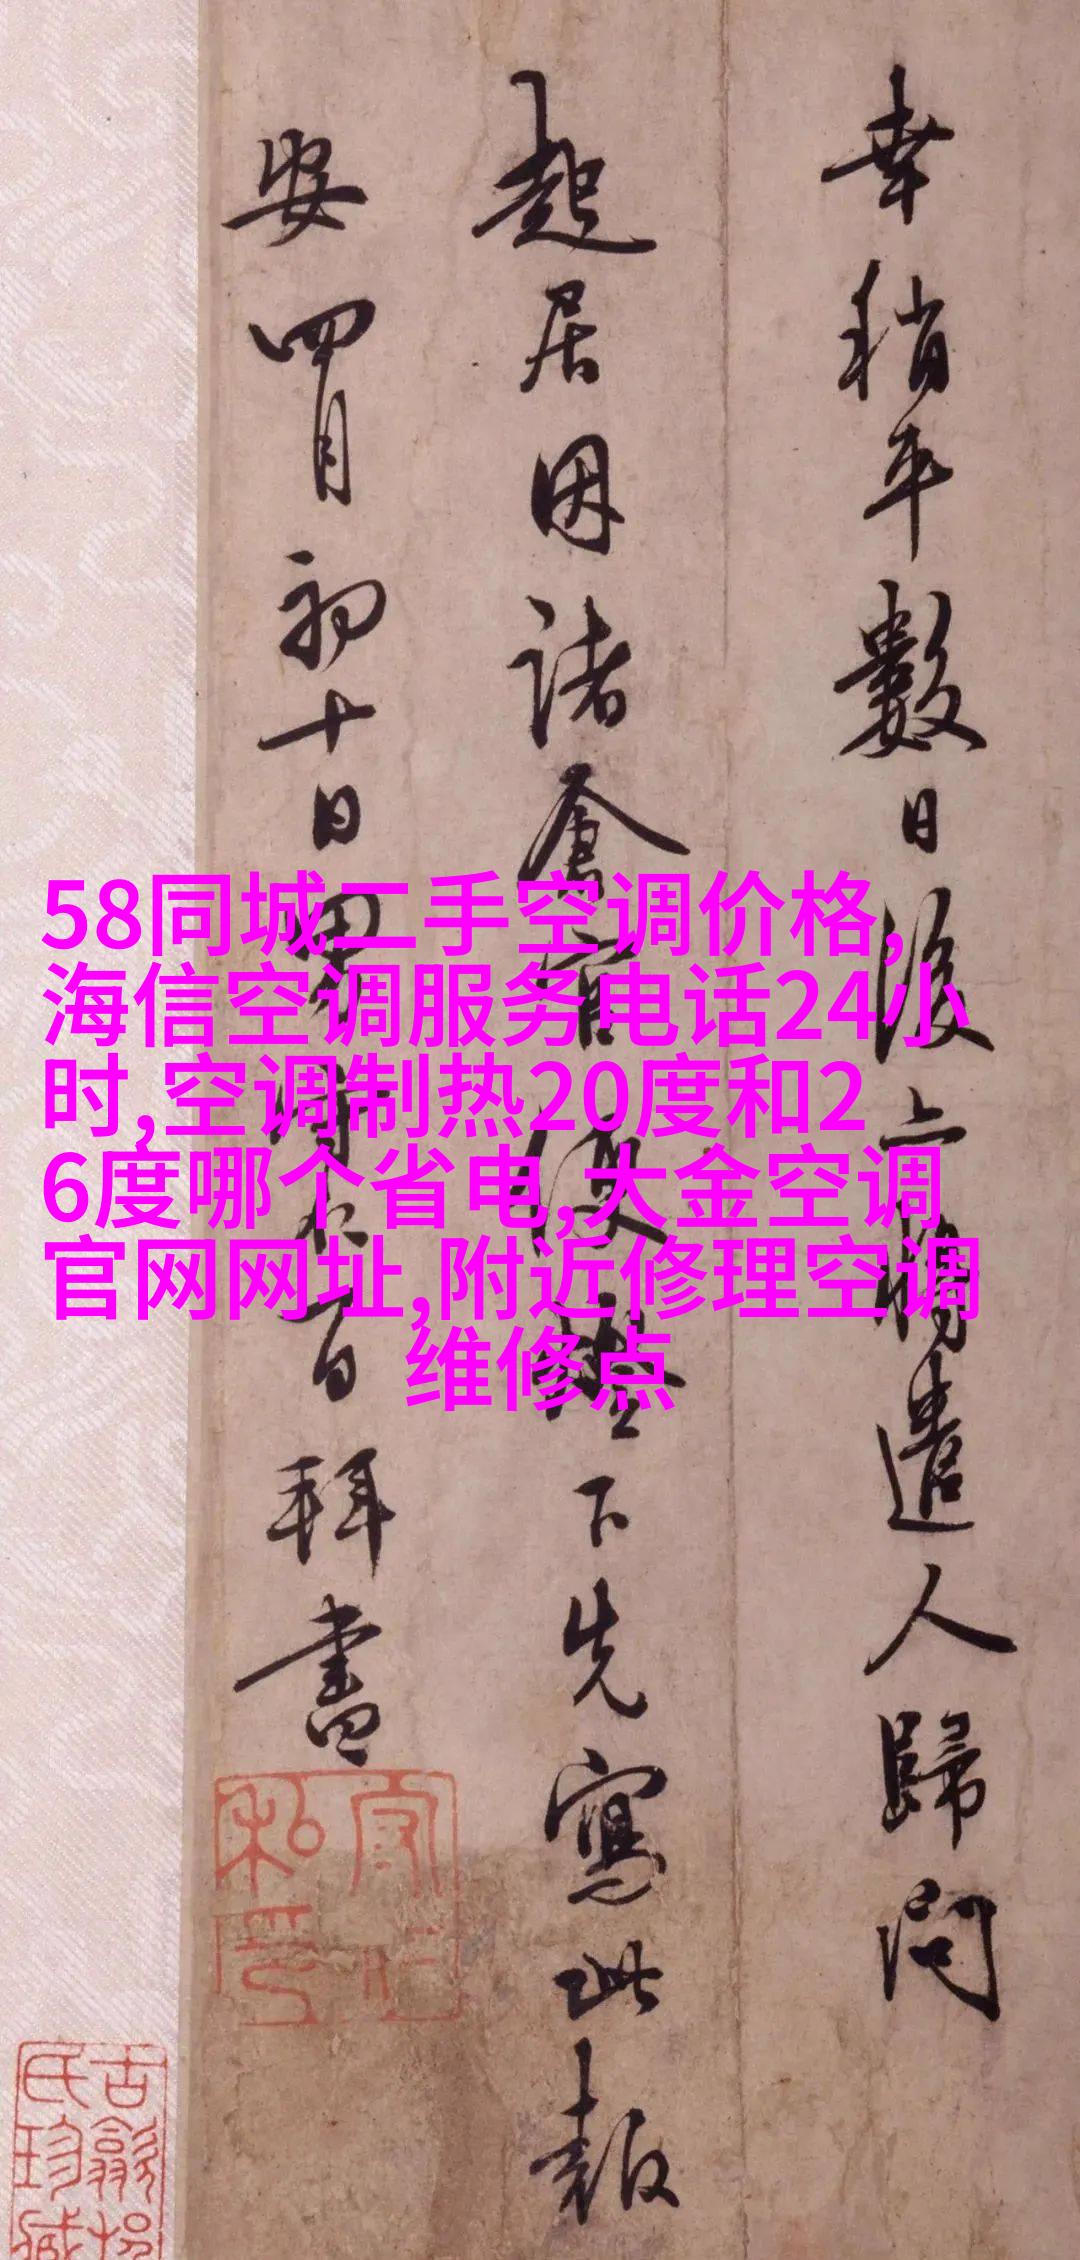 58同城二手空调价格,
海信空调服务电话24小
时,空调制热20度和2
6度哪个省电,大金空调
官网网址,附近修理空调
维修点
幸稍平數日後遣人歸問
起居因諸下先寫此報
安四月初十日男百拜書
私印
氏珍藏